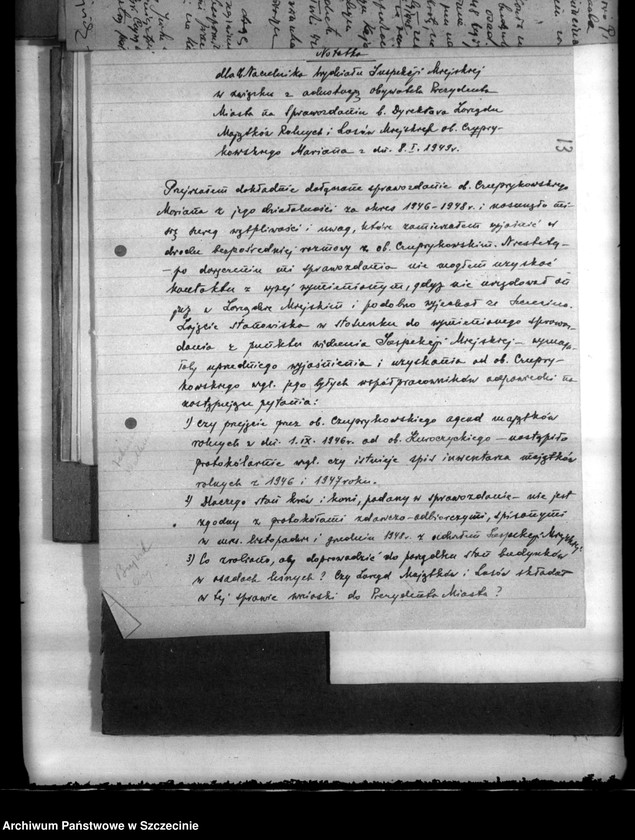 Notatka
dla Naczelnika Wydziału Inspekcji Miejskiej
w związku z adnotacją obywatela Prezydenta
Miasta na Sprawozdaniu b. Dyrektora Zarządu
Majątków Rolnych i Lasów Miejskich ob. Czupry-
kowskiego Mariana z dn. 8.I.1949r.
13
Przejrzałem dokładnie dołączone sprawozdanie ob. Czuprykowskiego
Mariana z jego działalności za okres 1946-1948r. i nasunęło mi
się szereg wątpliwości i uwag, które zamierzałem wyjaśnić w
drodze bezpośredniej rozmowy z ob. Czuprykowskim. Niestety-
-po doręczeniu mi sprawozdania nie mogłem uzyskać
kontaktu z wyżej wymienionym, gdyż nie urzędował on
już w Zarządzie Miejskim i podobno wyjechał ze Szczecina.
Zajęcie stanowiska w stosunku do wymienionego sprawoz-
dania z punktu widzenia Inspekcji Miejskiej - wymaga-
łoby uprzedniego wyjaśnienia i uzyskania od ob. Czupry-
kowskiego wzgl. jego byłych współpracowników odpowiedzi na
następujące pytania:
1) Czy przejęcie przez ob. Czuprykowskiego agend majątków
rolnych z dn. 1.IX.1946r. od ob. Kuroczyckiego - nastąpiło
protokólarnie wzgl. czy istnieje spis inwentarza majątków
rolnych z 1946 i 1947 roku.
2) Dlaczego stan krów i koni, podany w sprawozdaniu - nie jest
zgodny z protokołami zdawczo-odbiorczymi, spisanymi
w mies. listopadzie i grudniu 1948r. z udziałem Inspekcji Miejskiej?
3) Co zrobiono, aby doprowadzić do porządku stan budynków
w osadach leśnych? Czy Zarząd Majątków i Lasów składał
w tej sprawie wnioski do Prezydenta Miasta?
Archiwum Państwowe w Szczecinie